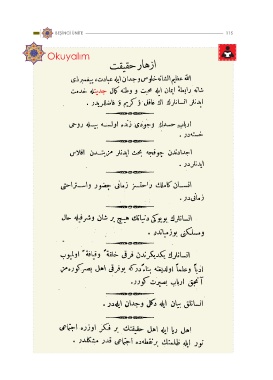 BEŞİNCİ ÜNİTE
116
Okuyalım
ازهار حقیقت
الله عظیم الشانه خلوص وجدان ایله عبادت، پیغمبر ذی
شانه رابطهٔ ایمان ایله محبت و وطنه کمال جدیتله خدمت
ایدنلر انسانلرك اك عاقل و کریم و فاضللریدر .
ارباب حسدك وجودی زنده اولسه بیله روحی
خسته‌در .
اجدادندن چوقجه بحث ایدنلر مزیتدن افلاس
ایدنلردر .
انسان کاملك راحتسز زمانی حضور واستراحتی
زمانی‌در .
انسانلرك بویوکی دنیانك هیچ بر شان وشرفیله حال
ومسلکنی بوزمیاندر .
انسانلرك یکدیکرندن فرقی خلقةً وقیافةً اولمیوب
ادباً وعلماً اولدیغنه بناءً درکه بوفرقی اهل بصر کوره‌مز
آنجق ارباب بصیرت کورر.
انسانلق بیان ایله دکل وجدان ایله‌در .
اهل ریا ایله اهل حقیقتك بر فکر اوزره اجتماعی
نور ایله ظلمتك برنقطه‌ده اجتماعی قدر مشکلدر .